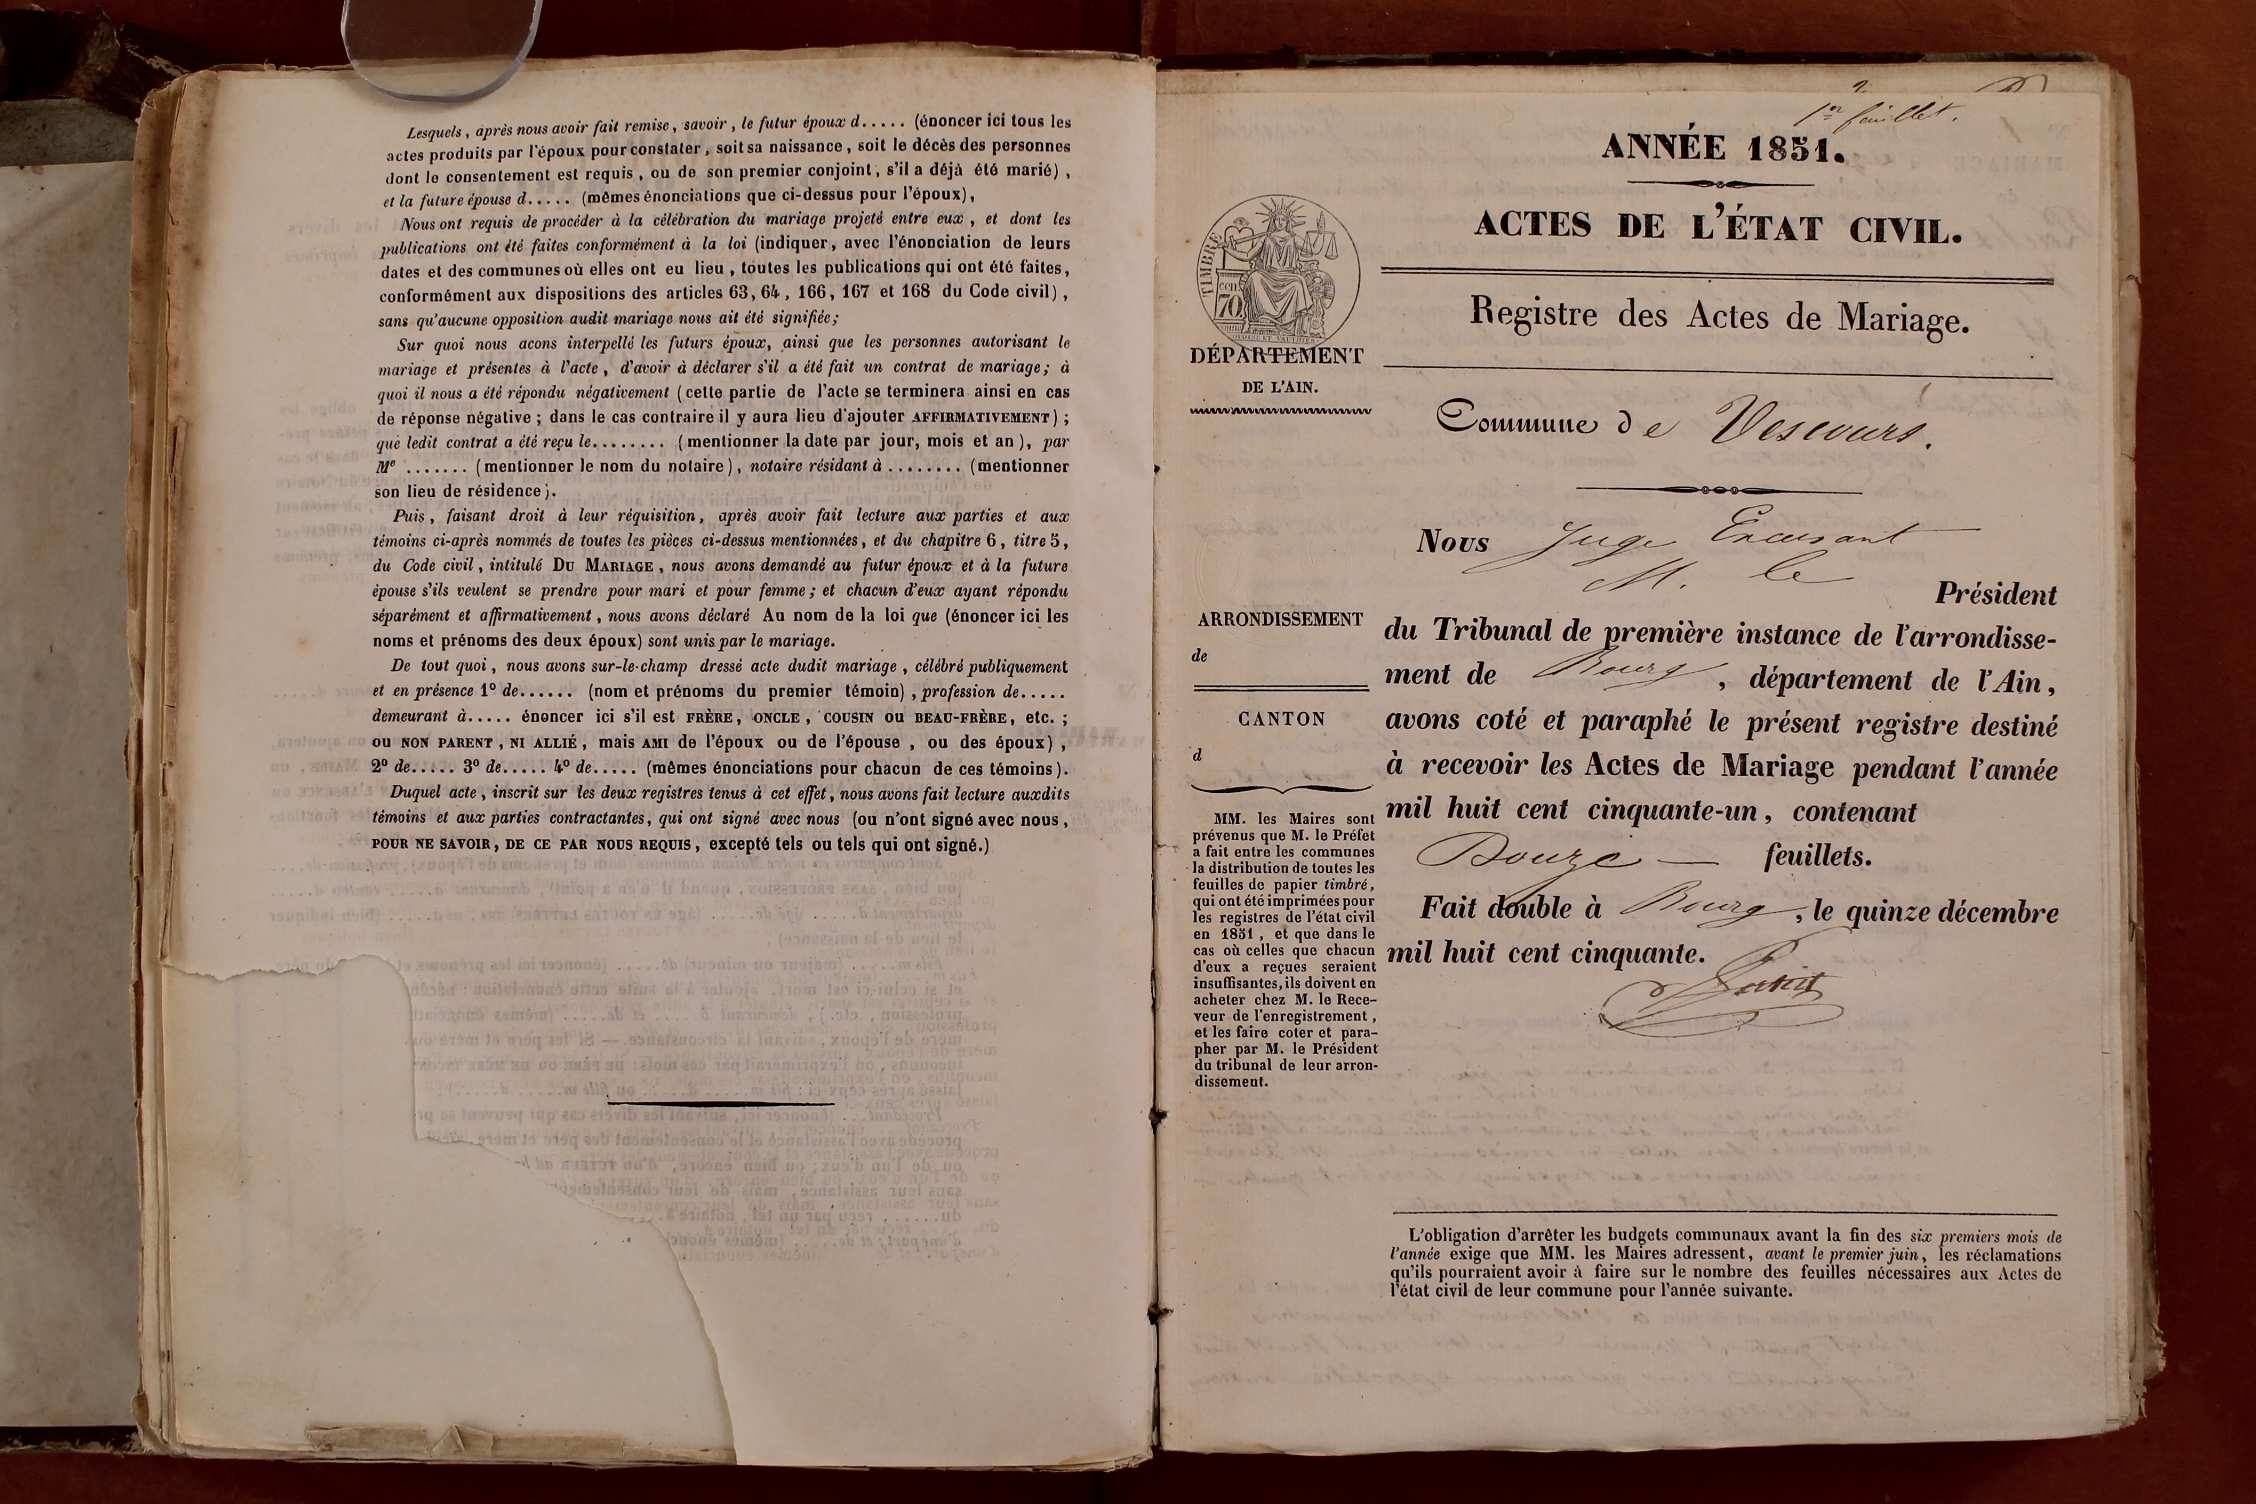 Lesquels, après nous avoir fait remise, savoir, le futur époux d..... (énoncer ici tous les
actes produits par l'époux pour constater, soit sa naissance, soit le décès des personnes
dont le consentement est requis, ou de son premier conjoint, s'il a déjà été marié),
et la future épouse d..... (mêmes énonciations que ci-dessus pour l'époux),
Nous ont requis de procéder à la célébration du mariage projeté entre eux, et dont les
publications ont été faites conformément à la loi (indiquer, avec l'énonciation de leurs
dates et des communes où elles ont eu lieu, toutes les publications qui ont été faites,
conformément aux dispositions des articles 63, 64, 166, 167 et 168 du Code civil),
sans qu'aucune opposition audit mariage nous ait été signifiée;
Sur quoi nous acons interpellé les futurs époux, ainsi que les personnes autorisant le
mariage et présentes à l'acte, d'avoir à déclarer s'il a été fait un contrat de mariage; à
quoi il nous a été répondu négativement (cette partie de l'acte se terminera ainsi en cas
de réponse négative; dans le cas contraire il y aura lieu d'ajouter AFFIRMATIVEMENT);
que ledit contrat a été reçu le........ (mentionner la date par jour, mois et an), par
Me ....... (mentionner le nom du notaire), notaire résidant à ........ (mentionner
son lieu de résidence).
Puis, faisant droit à leur réquisition, après avoir fait lecture aux parties et aux
témoins ci-après nommés de toutes les pièces ci-dessus mentionnées, et du chapitre 6, titre 5,
du Code civil, intitulé DU MARIAGE, nous avons demandé au futur époux et à la future
épouse s'ils veulent se prendre pour mari et pour femme; et chacun d'eux ayant répondu
séparément et affirmativement, nous avons déclaré Au nom de la loi que (énoncer ici les
noms et prénoms des deux époux) sont unis par le mariage.
De tout quoi, nous avons sur-le-champ dressé acte dudit mariage, célébré publiquement
et en présence 1º de...... (nom et prénoms du premier témoin), profession de.....
demeurant à..... énoncer ici s'il est FRÈRE, ONCLE, COUSIN ou BEAU-FRÈRE, etc.;
ou NON PARENT, NI ALLIÉ, mais AMI de l'époux ou de l'épouse, ou des époux),
2º de..... 3º de..... 4º de..... (mêmes énonciations pour chacun de ces témoins).
Duquel acte, inscrit sur les deux registres tenus à cet effet, nous avons fait lecture auxdits
témoins et aux parties contractantes, qui ont signé avec nous (ou n'ont signé avec nous,
POUR NE SAVOIR, DE CE PAR NOUS REQUIS, excepté tels ou tels qui ont signé.)
1er feuillet.
ANNÉE 1851.
ACTES DE L'ÉTAT CIVIL.
Registre des Actes de Mariage.
TIMBRE
cen
70
DÉPARTEMENT
DE L'AIN.
Commune de Vescours.
Nous Juge Encusant
M. le
Président
du Tribunal de première instance de l'arrondisse-
ment de Bourg, département de l'Ain,
avons coté et paraphé le présent registre destiné
à recevoir les Actes de Mariage pendant l'année
mil huit cent cinquante-un, contenant
Douze — feuillets.
Fait double à Bourg, le quinze décembre
mil huit cent cinquante.
ARRONDISSEMENT
de
CANTON
d
MM. les Maires sont
prévenus que M. le Préfet
a fait entre les communes
la distribution de toutes les
feuilles de papier timbré,
qui ont été imprimées pour
les registres de l'état civil
en 1851, et que dans le
cas où celles que chacun
d'eux a reçues seraient
insuffisantes, ils doivent en
acheter chez M. le Rece-
veur de l'enregistrement,
et les faire coter et para-
pher par M. le Président
du tribunal de leur arron-
dissement.
L'obligation d'arrêter les budgets communaux avant la fin des six premiers mois de
l'année exige que MM. les Maires adressent, avant le premier juin, les réclamations
qu'ils pourraient avoir à faire sur le nombre des feuilles nécessaires aux Actes de
l'état civil de leur commune pour l'année suivante.